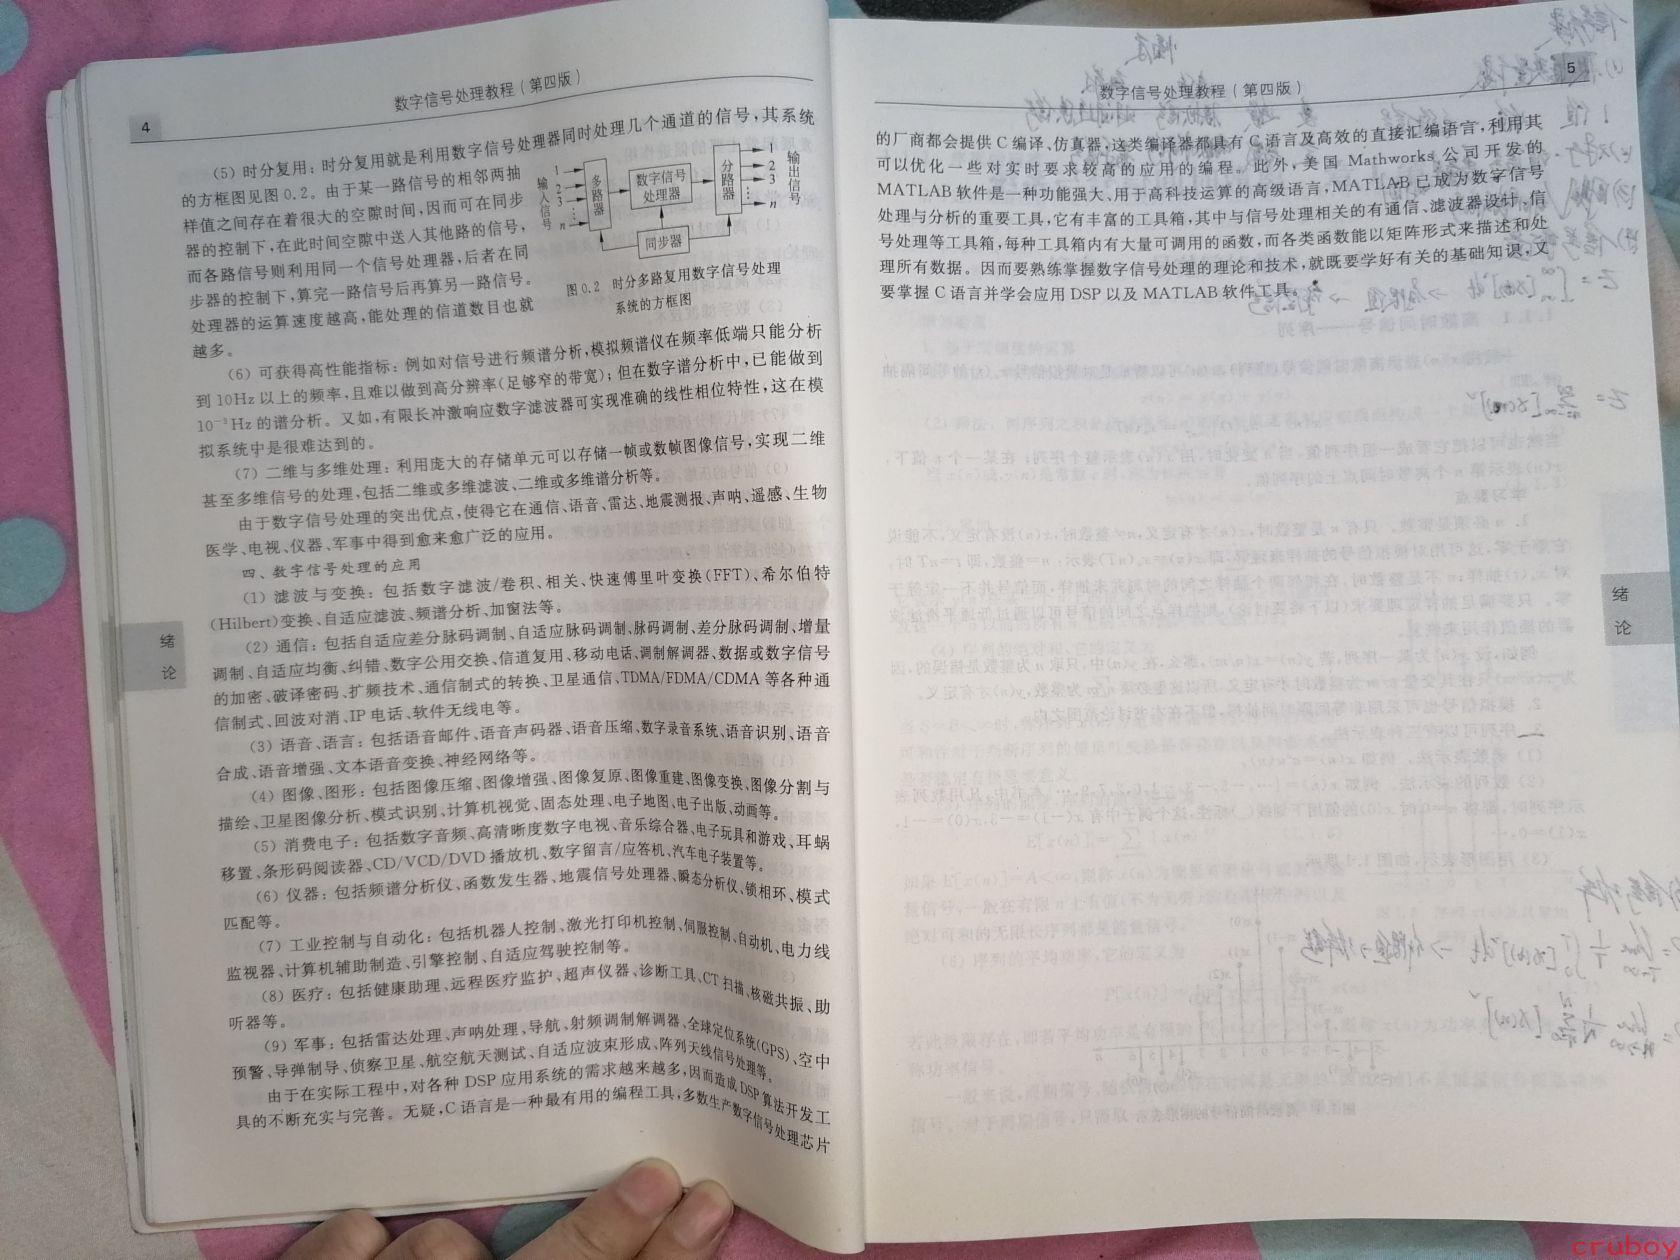 数字信号处理教程(第四版)
4
(5) 时分复用: 时分复用就是利用数字信号处理器同时处理几个通道的信号,其系统
的方框图见图0.2。由于某一路信号的相邻两抽
样值之间存在着很大的空隙时间,因而可在同步
器的控制下,在此时间空隙中送入其他路的信号,
而各路信号则利用同一个信号处理器,后者在同
步器的控制下,算完一路信号后再算另一路信号。
处理器的运算速度越高,能处理的信道数目也就
越多。
输入信号
1
2
3
⋮
n
多路器
数字信号
处理器
分路器
同步器
1
2
3
⋮
n
输出信号
图0.2 时分多路复用数字信号处理
系统的方框图
(6) 可获得高性能指标: 例如对信号进行频谱分析,模拟频谱仪在频率低端只能分析
到10Hz以上的频率,且难以做到高分辨率(足够窄的带宽);但在数字谱分析中,已能做到
10⁻³Hz的谱分析。又如,有限长冲激响应数字滤波器可实现准确的线性相位特性,这在模
拟系统中是很难达到的。
(7) 二维与多维处理: 利用庞大的存储单元可以存储一帧或数帧图像信号,实现二维
甚至多维信号的处理,包括二维或多维滤波、二维或多维谱分析等。
由于数字信号处理的突出优点,使得它在通信、语音、雷达、地震测报、声呐、遥感、生物
医学、电视、仪器、军事中得到愈来愈广泛的应用。
四、数字信号处理的应用
(1) 滤波与变换: 包括数字滤波/卷积、相关、快速傅里叶变换(FFT)、希尔伯特
(Hilbert)变换、自适应滤波、频谱分析、加窗法等。
(2) 通信: 包括自适应差分脉码调制、自适应脉码调制、脉码调制、差分脉码调制、增量
调制、自适应均衡、纠错、数字公用交换、信道复用、移动电话、调制解调器、数据或数字信号
的加密、破译密码、扩频技术、通信制式的转换、卫星通信、TDMA/FDMA/CDMA等各种通
信制式、回波对消、IP电话、软件无线电等。
(3) 语音、语言: 包括语音邮件、语音声码器、语音压缩、数字录音系统、语音识别、语音
合成、语音增强、文本语音变换、神经网络等。
(4) 图像、图形: 包括图像压缩、图像增强、图像复原、图像重建、图像变换、图像分割与
描绘、卫星图像分析、模式识别、计算机视觉、固态处理、电子地图、电子出版、动画等。
(5) 消费电子: 包括数字音频、高清晰度数字电视、音乐综合器、电子玩具和游戏、耳蜗
移置、条形码阅读器、CD/VCD/DVD播放机、数字留言/应答机、汽车电子装置等。
(6) 仪器: 包括频谱分析仪、函数发生器、地震信号处理器、瞬态分析仪、锁相环、模式
匹配等。
(7) 工业控制与自动化: 包括机器人控制、激光打印机控制、伺服控制、自动机、电力线
监视器、计算机辅助制造、引擎控制、自适应驾驶控制等。
(8) 医疗: 包括健康助理、远程医疗监护、超声仪器、诊断工具、CT扫描、核磁共振、助
听器等。
(9) 军事: 包括雷达处理、声呐处理、导航、射频调制解调器、全球定位系统(GPS)、空中
预警、导弹制导、侦察卫星、航空航天测试、自适应波束形成、阵列天线信号处理等。
由于在实际工程中,对各种DSP应用系统的需求越来越多,因而造成DSP算法开发工
具的不断充实与完善。无疑,C语言是一种最有用的编程工具,多数生产数字信号处理芯片
绪
论
5
数字信号处理教程(第四版)
的厂商都会提供C编译、仿真器,这类编译器都具有C语言及高效的直接汇编语言,利用其
可以优化一些对实时要求较高的应用的编程。此外,美国Mathworks公司开发的
MATLAB软件是一种功能强大、用于高科技运算的高级语言,MATLAB已成为数字信号
处理与分析的重要工具,它有丰富的工具箱,其中与信号处理相关的有通信、滤波器设计、信
号处理等工具箱,每种工具箱内有大量可调用的函数,而各类函数能以矩阵形式来描述和处
理所有数据。因而要熟练掌握数字信号处理的理论和技术,就既要学好有关的基础知识,又
要掌握C语言并学会应用DSP以及MATLAB软件工具。
绪
论
cruboy